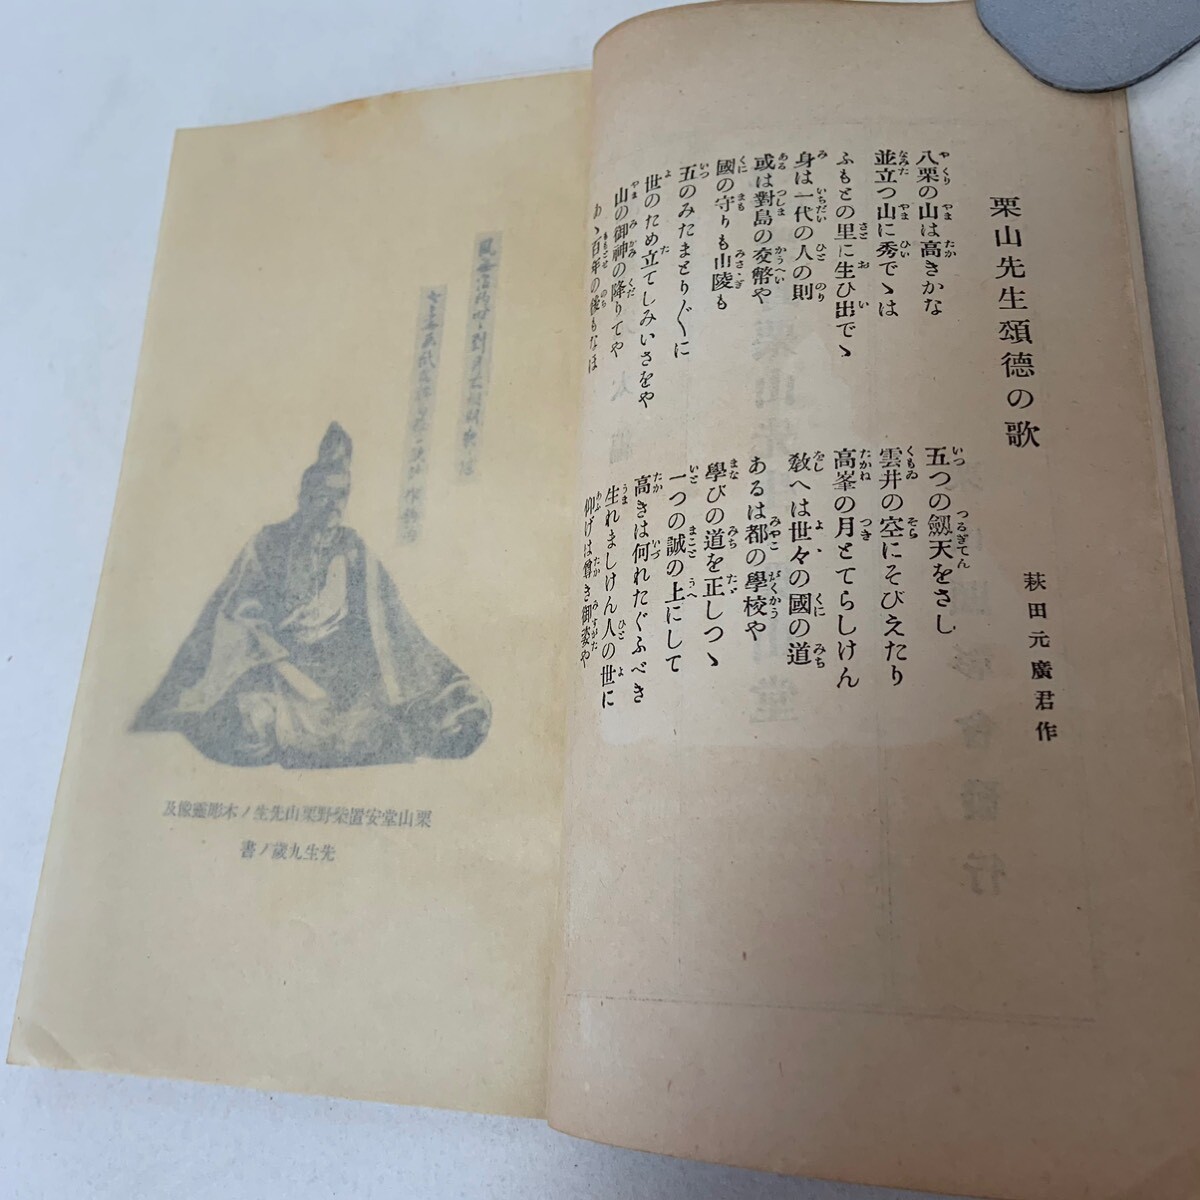 栗山先生頌德の歌
萩田元廣君作
八栗の山は高きかな
五つの劔天をさし
並立つ山に秀でゝは
雲井の空にそびえたり
ふもとの里に生ひ出でゝ
高峯の月とてらしけん
身は一代の人の則
敎へは世々の國の道
或は對島の交幣や
あるは都の學校や
國の守りも山陵も
學びの道を正しつゝ
五のみたまとり〴〵に
一つの誠の上にして
世のため立てしみいさをや
高きは何れたぐふべき
山の御神の降りてや
生れましけん人の世に
あゝ百年の後もなほ
仰げは尊き御姿や
栗山堂安置柴野栗山先生ノ木彫靈像及
先生九歲ノ書